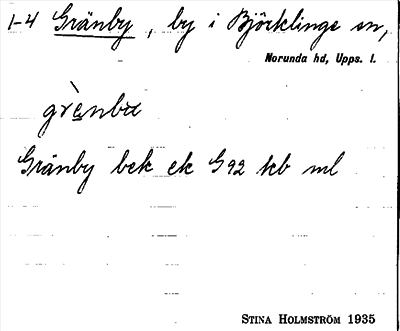 1-4 Gränby, by i Björklinge sn,
Norunda hd, Upps. l.
grènbu
Gränby bek ek G 92 kb ml
STINA HOLMSTRÖM 1935